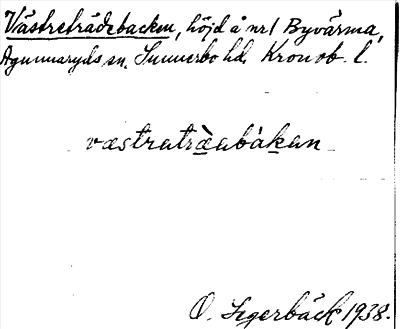 Västreträdebacken, höjd å nr 1 Byvärma,
Agunnaryds sn. Sunnerbo hd. Kronob. l.
væstratræ̀abàkan
O. Segerbäck 1938.